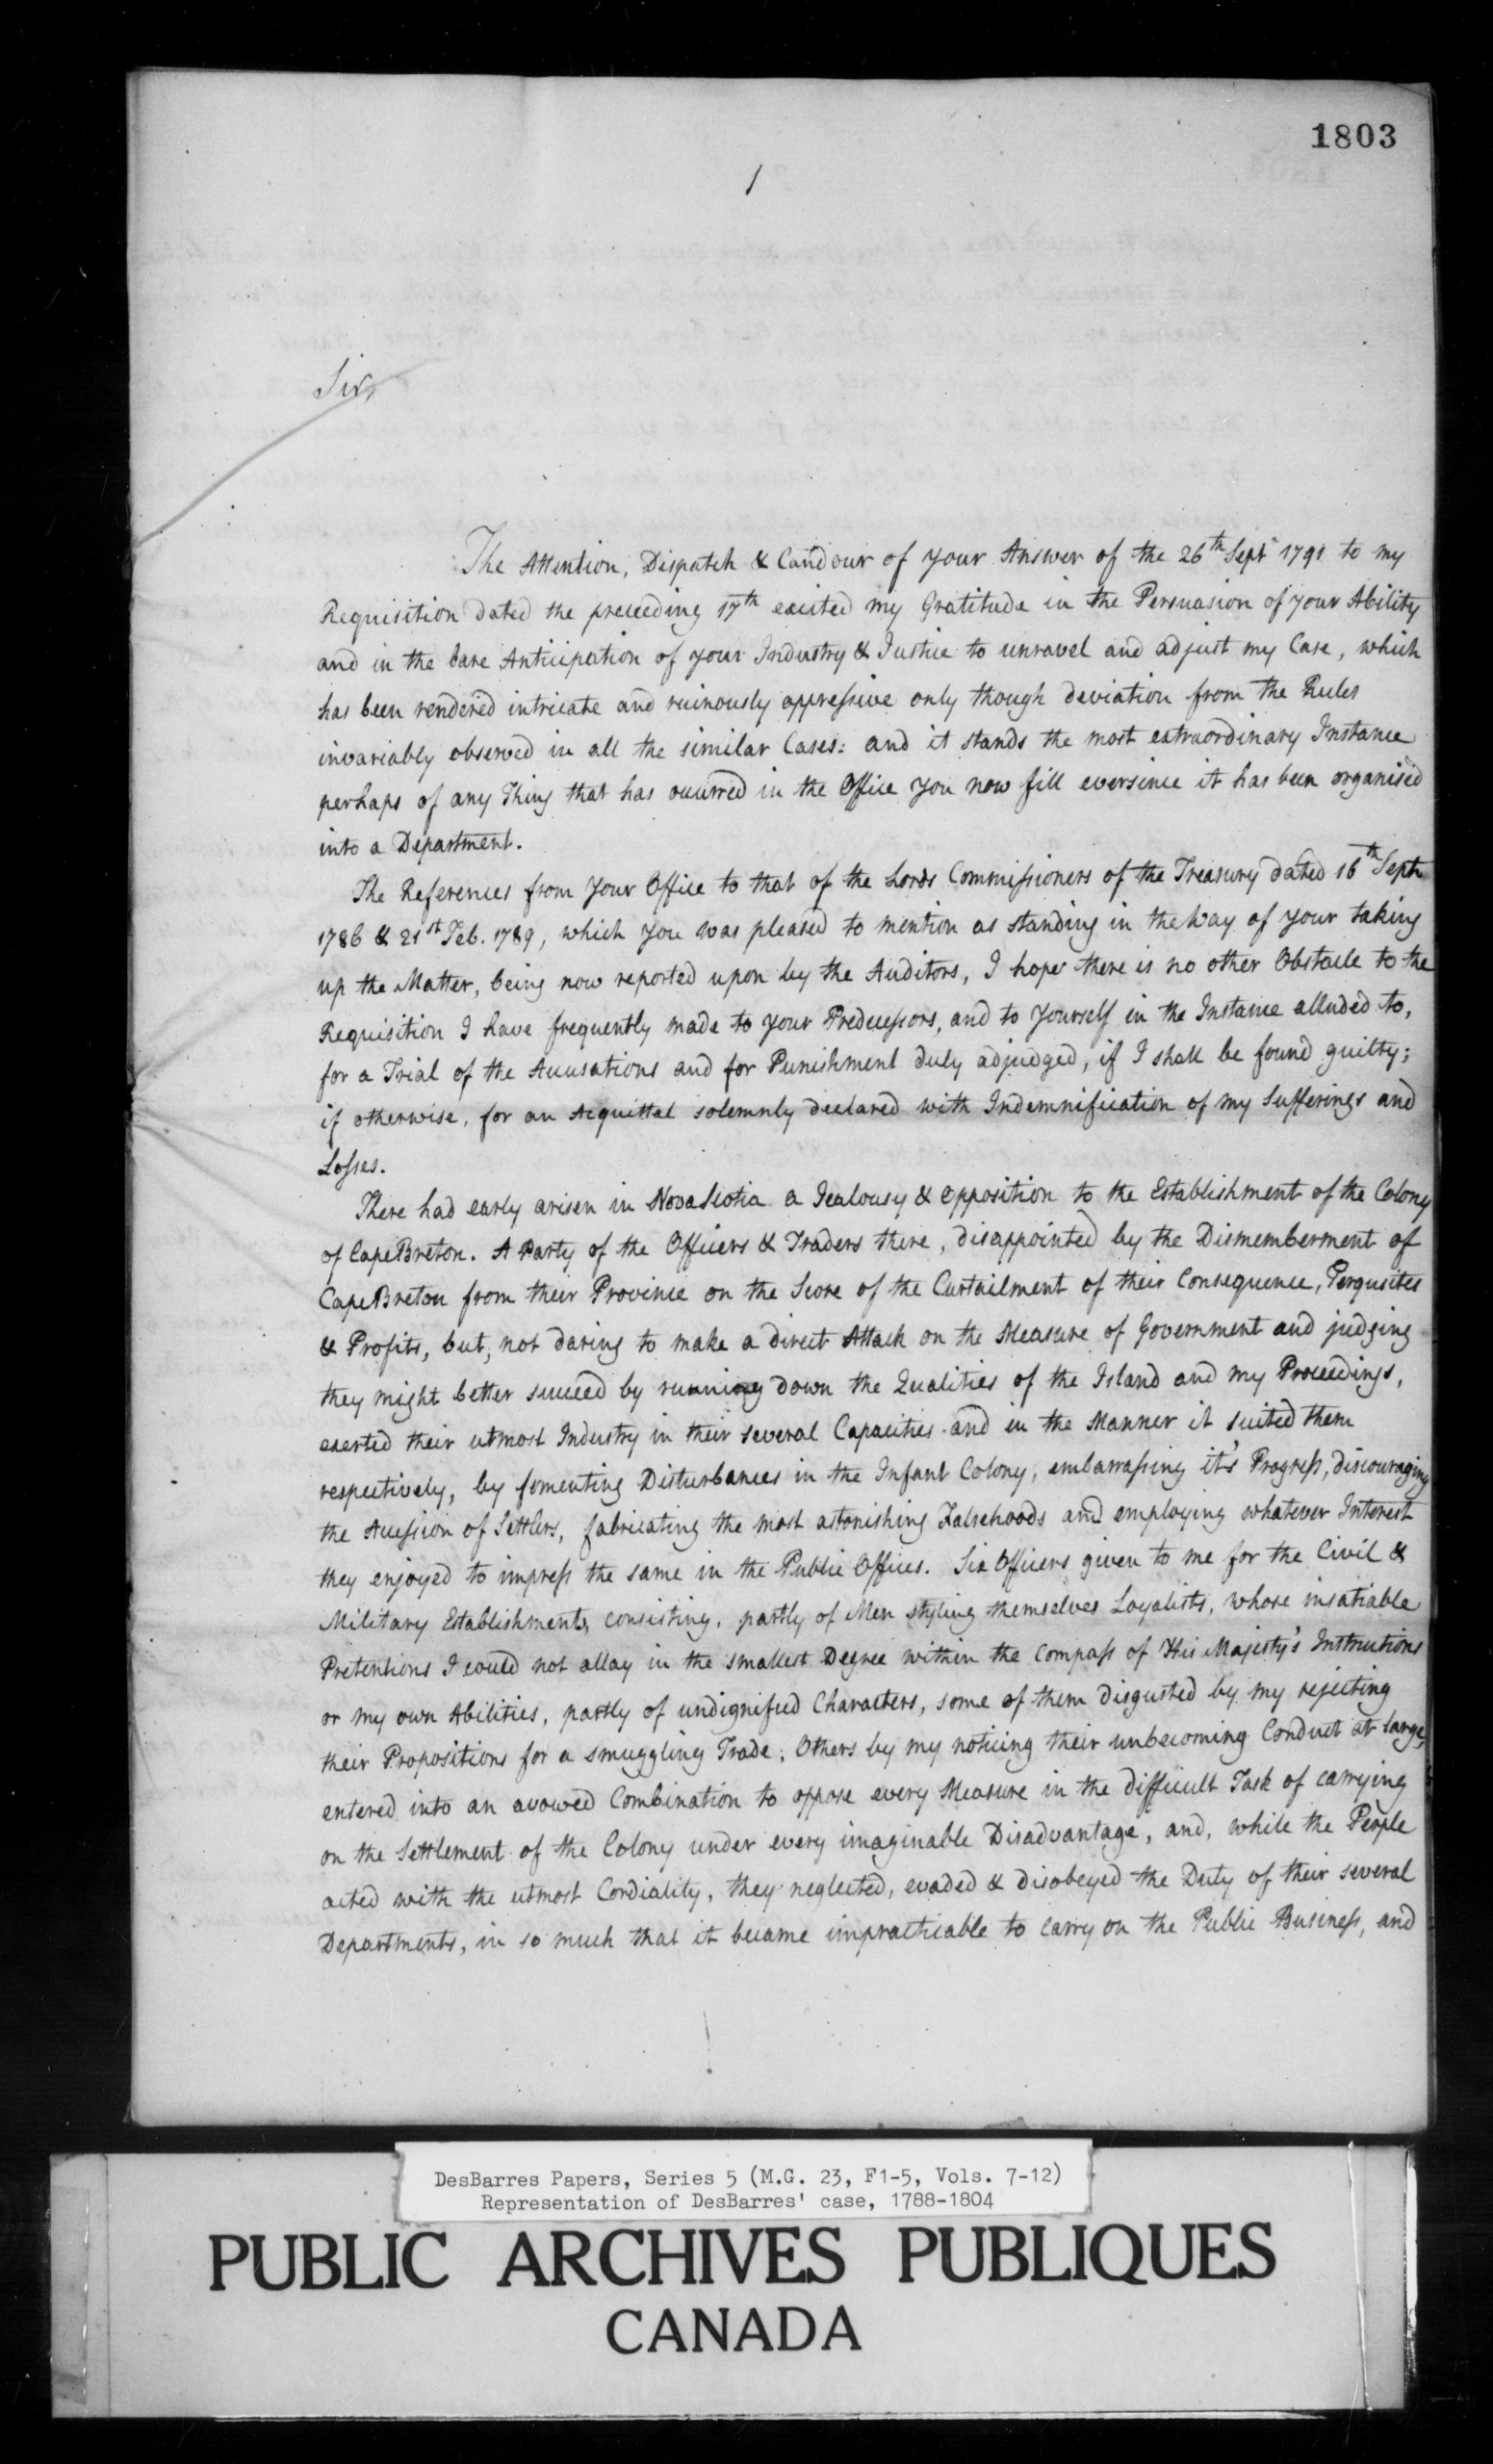 1803
1
Sir,
The Attention, Dispatch & Candour of your Answer of the 26th Septr 1791 to my
Requisition dated the preceeding 17th excited my Gratitude in the Persuasion of your Ability
and in the bare Anticipation of your Industry & Justice to unravel and adjust my Case, which
has been rendered intricate and ruinously oppressive only though deviation from the Rules
invariably observed in all the similar Cases: and it stands the most extraordinary Instance
perhaps of any Thing that has occurred in the Office you now fill eversince it has been organised
into a Department.
The References from your Office to that of the Lords Commissioners of the Treasury dated 16th Septr
1786 & 21st Feb. 1789, which you was pleased to mention as standing in the Way of your taking
up the Matter, being now reported upon by the Auditors, I hope there is no other Obstacle to the
Requisition I have frequently made to your Predecessors, and to yourself in the Instance alluded to,
for a Trial of the Accusations and for Punishment duly adjudged, if I shall be found guilty;
if otherwise, for an Acquittal solemnly declared with Indemnification of my Sufferings and
Losses.
There had early arisen in NovaScotia a Jealousy & Opposition to the Establishment of the Colony
of CapeBreton. A Party of the Officers & Traders there, disappointed by the Dismemberment of
CapeBreton from their Province on the Score of the Curtailment of their Consequence, Perquisites
& Profits, but, not daring to make a direct Attack on the Measure of Government and judging
they might better succeed by running down the Qualities of the Island and my Proceedings,
exerted their utmost Industry in their several Capacities and in the Manner it suited them
respectively, by fomenting Disturbances in the Infant Colony, embarrassing it's Progress, discouraging
the Accession of Settlers, fabricating the most astonishing Falsehoods and employing whatever Interest
they enjoyed to impress the same in the Public Offices. Six Officers given to me for the Civil &
Military Establishments, consisting, partly of Men styling themselves Loyalists, whose insatiable
Pretentions I could not allay in the smallest Degree within the Compass of His Majesty's Instructions
or my own Abilities, partly of undignified Characters, some of them disgusted by my rejecting
their Propositions for a smuggling Trade; Others by my noticing their unbecoming Conduct at large,
entered into an avowed Combination to oppose every Measure in the difficult Task of carrying
on the Settlement of the Colony under every imaginable Disadvantage, and, while the People
acted with the utmost Cordiality, they neglected, evaded & disobeyed the Duty of their several
Departments, in so much that it became impracticable to carry on the Public Business, and
DesBarres Papers, Series 5 (M.G. 23, F1-5, Vols. 7-12)
Representation of DesBarres' case, 1788-1804
PUBLIC ARCHIVES PUBLIQUES
CANADA